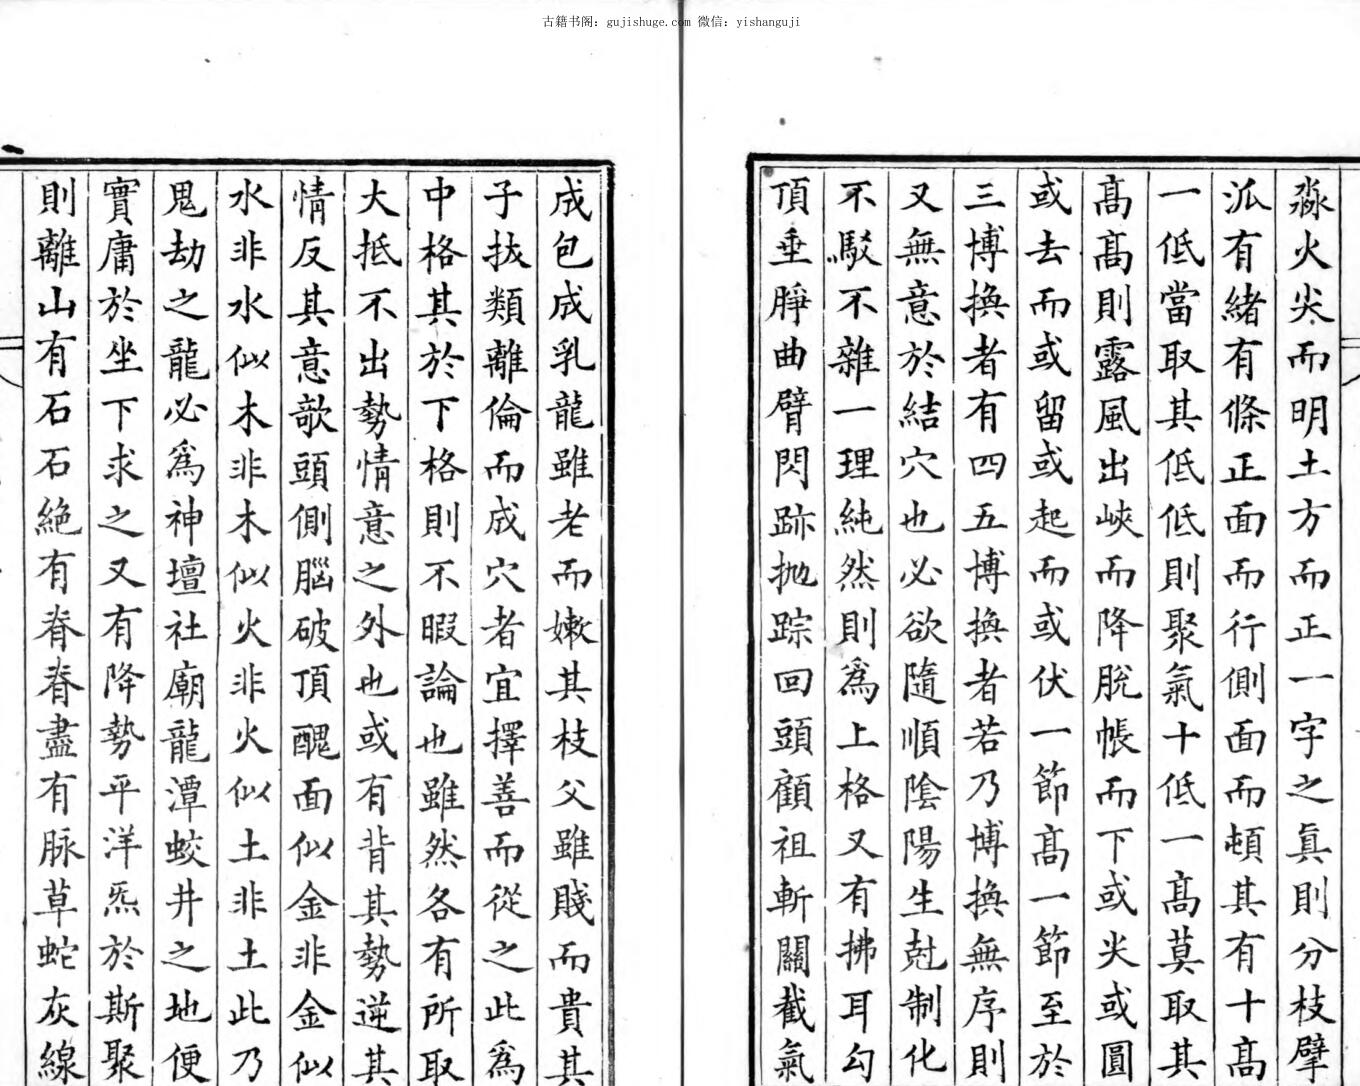 古籍书阁：gujishuge.com 微信：yishanguji
淼火尖而明土方而正一字之眞則分枝擘
泒有緒有條正面而行側面而頓其有十高
一低當取其低低則聚氣十低一高莫取其
髙髙則露風出峽而降脫帳而下或尖或圓
或去而或留或起而或伏一節髙一節至於
三博換者有四五博換者若乃博換無序則
又無意於結穴也必欲隨順陰陽生尅制化
不駁不雜一理純然則爲上格又有拂耳勾
頂垂脝曲臂閃跡抛踪回頭顧祖斬關截氣
成包成乳龍雖老而嫩其枝父雖賤而貴其
子拔類離倫而成穴者宜擇善而從之此爲
中格其於下格則不暇論也雖然各有所取
大抵不出勢情意之外也或有背其勢逆其
情反其意欹頭側腦破頂醜面似金非金似
水非水似木非木似火非火似土非土此乃
鬼劫之龍必爲神壇社廟龍潭蛟井之地便
實庸於坐下求之又有降勢平洋炁於斯聚
則離山有石石絶有脊脊盡有脉草蛇灰線